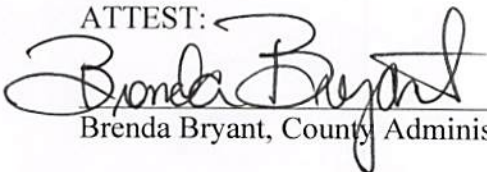 ATTEST:
Brenda Bryant
Brenda Bryant, County Adminis